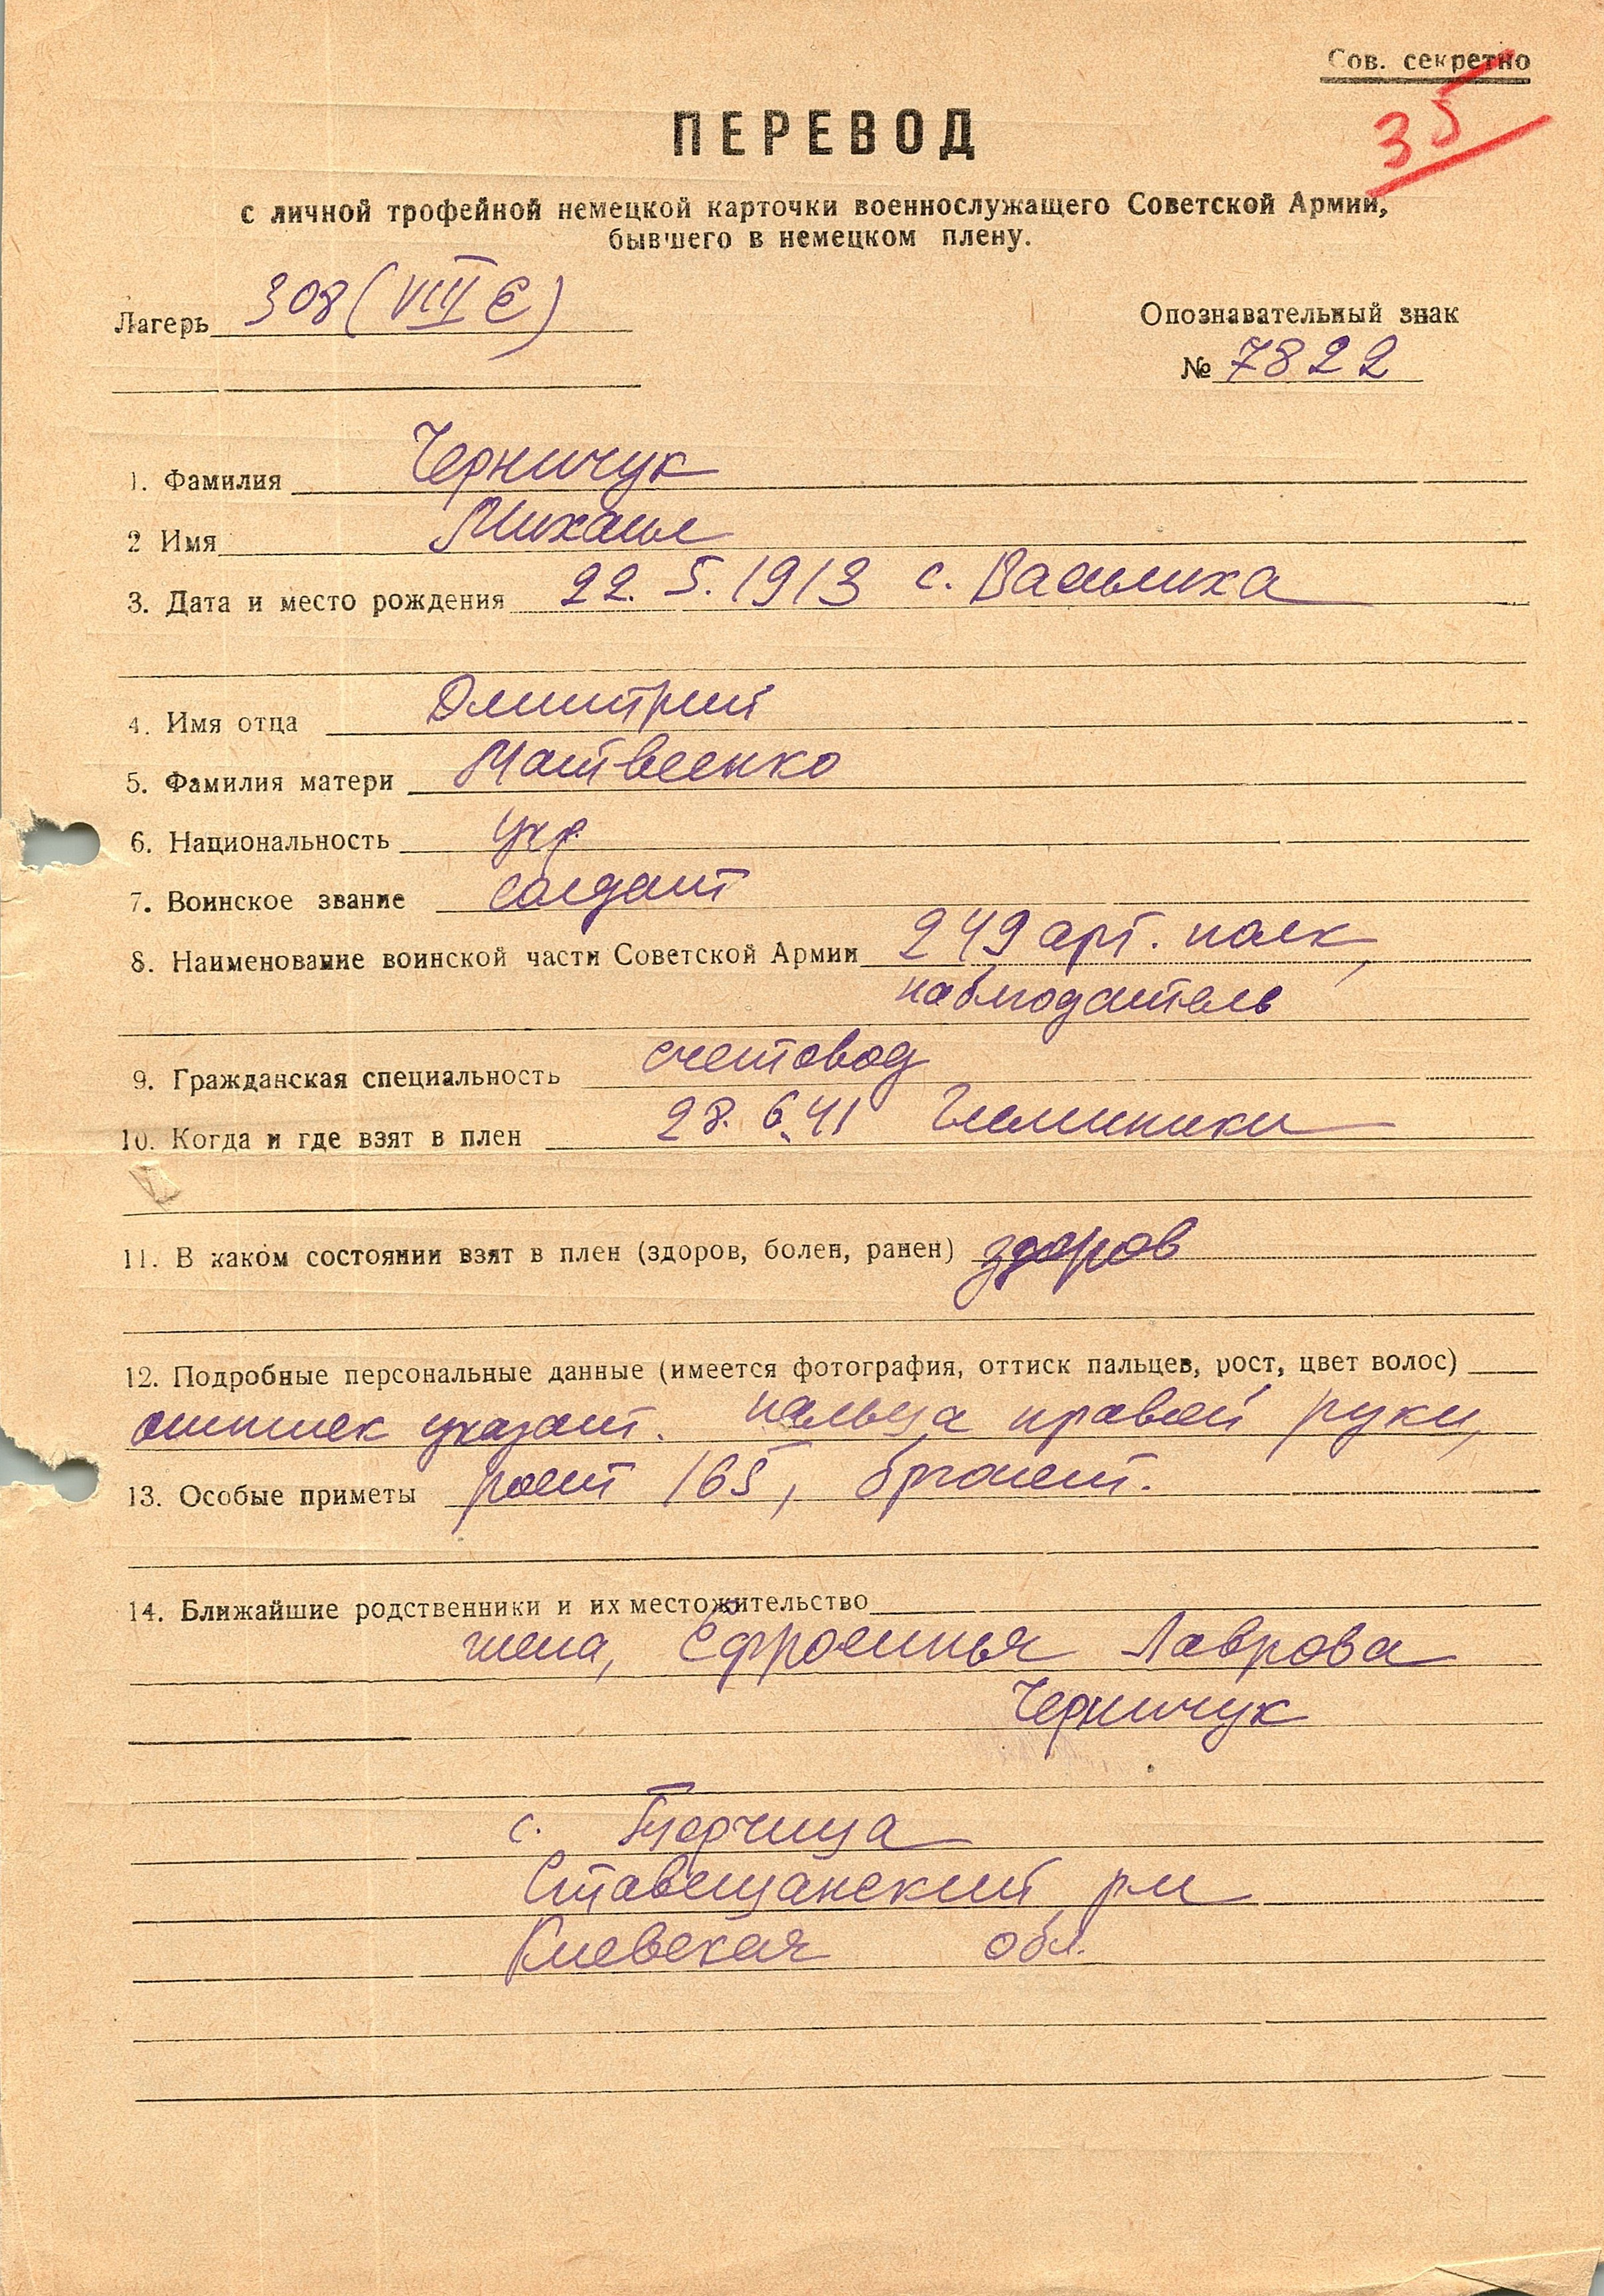 Сов. секретно
35
ПЕРЕВОД
с личной трофейной немецкой карточки военнослужащего Советской Армии,
бывшего в немецком плену.
Лагерь 308 (VIII E)
Опознавательный знак
№ 7822
1. Фамилия Черничук
2 Имя Михаил
3. Дата и место рождения 22. 5. 1913 с. Василиха
4. Имя отца Дмитрий
5. Фамилия матери Матвеенко
6. Национальность укр
7. Воинское звание солдат
8. Наименование воинской части Советской Армии 249 арт. полк,
наблюдатель
9. Гражданская специальность счетовод
10. Когда и где взят в плен 28. 6. 41
11. В каком состоянии взят в плен (здоров, болен, ранен) здоров
12. Подробные персональные данные (имеется фотография, оттиск пальцев, рост, цвет волос)
оттиск указат. пальца правой руки,
13. Особые приметы рост 165, брюнет.
14. Ближайшие родственники и их местожительство
жена, Ефросинья Лаврова
Черничук
с.
Ставещанский р-н
Киевская обл.